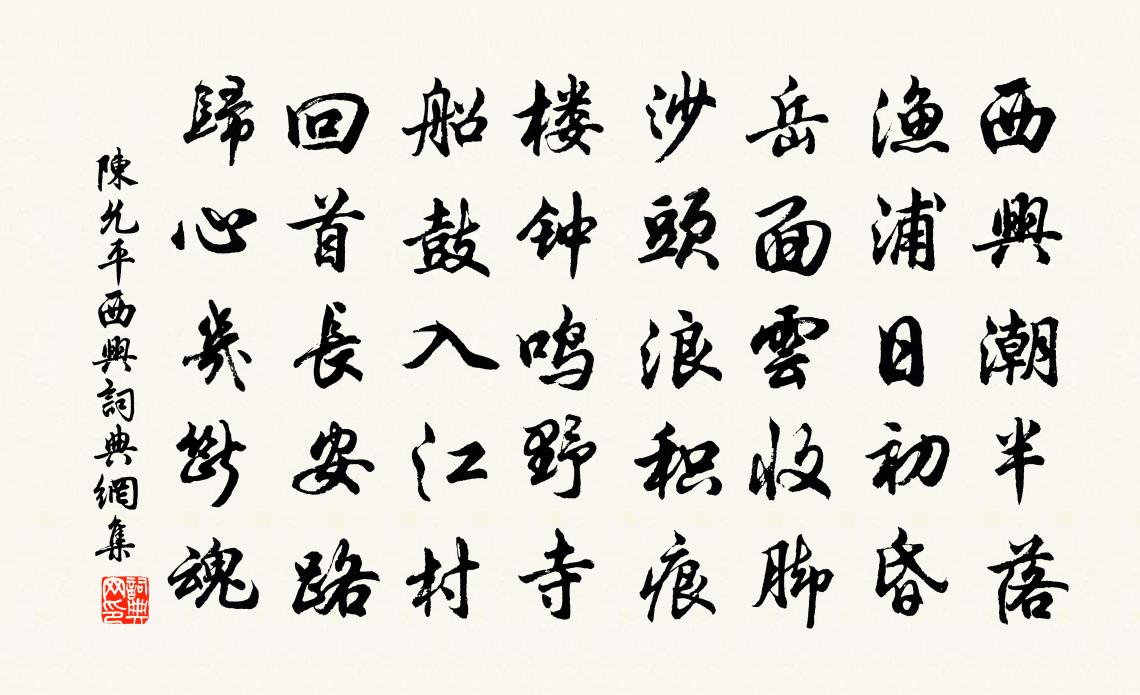 西興潮半落
漁浦日初昏
岳面雲收脚
沙頭浪积痕
楼钟鸣野寺
船鼓入江村
回首長安路
歸心幾斷魂
陳允平西興詞典網集
詞典网印